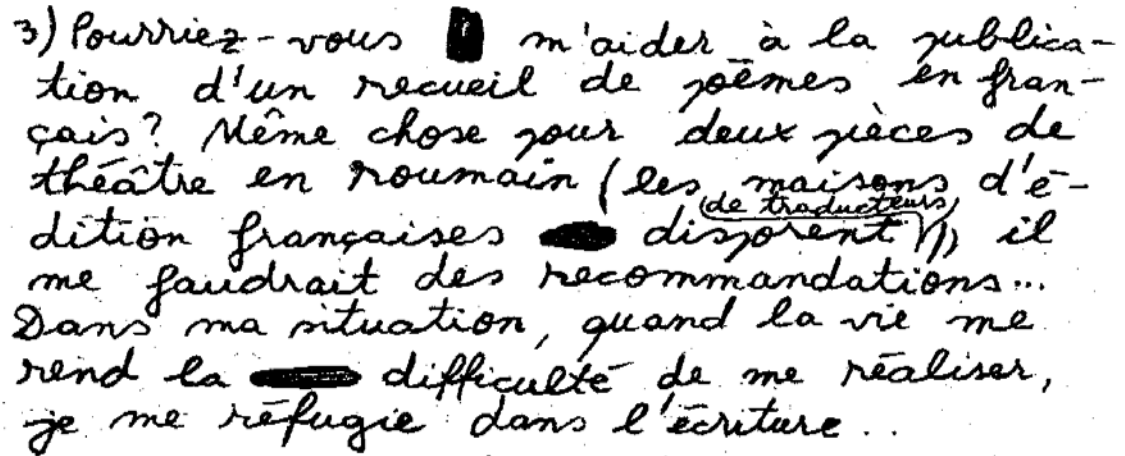 3) Pourriez-vous m'aider à la publica-
tion d'un recueil de poèmes en fran-
çais? Même chose pour deux pièces de
théâtre en roumain (les maisons d'é-
dition françaises disposent de traducteurs), il
me faudrait des recommandations...
Dans ma situation, quand la vie me
rend la difficulté de me réaliser,
je me réfugie dans l'écriture..